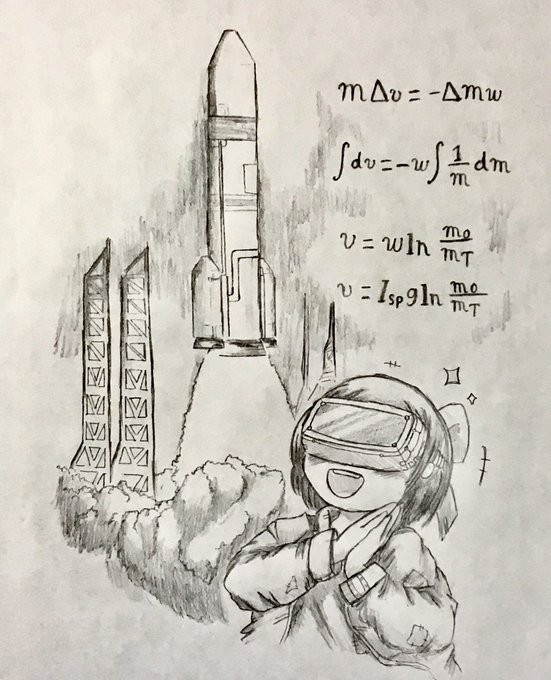 mΔv = -Δmw
∫dv = -w∫ 1/m dm
v = w ln m0/mT
v = Isp g ln m0/mT